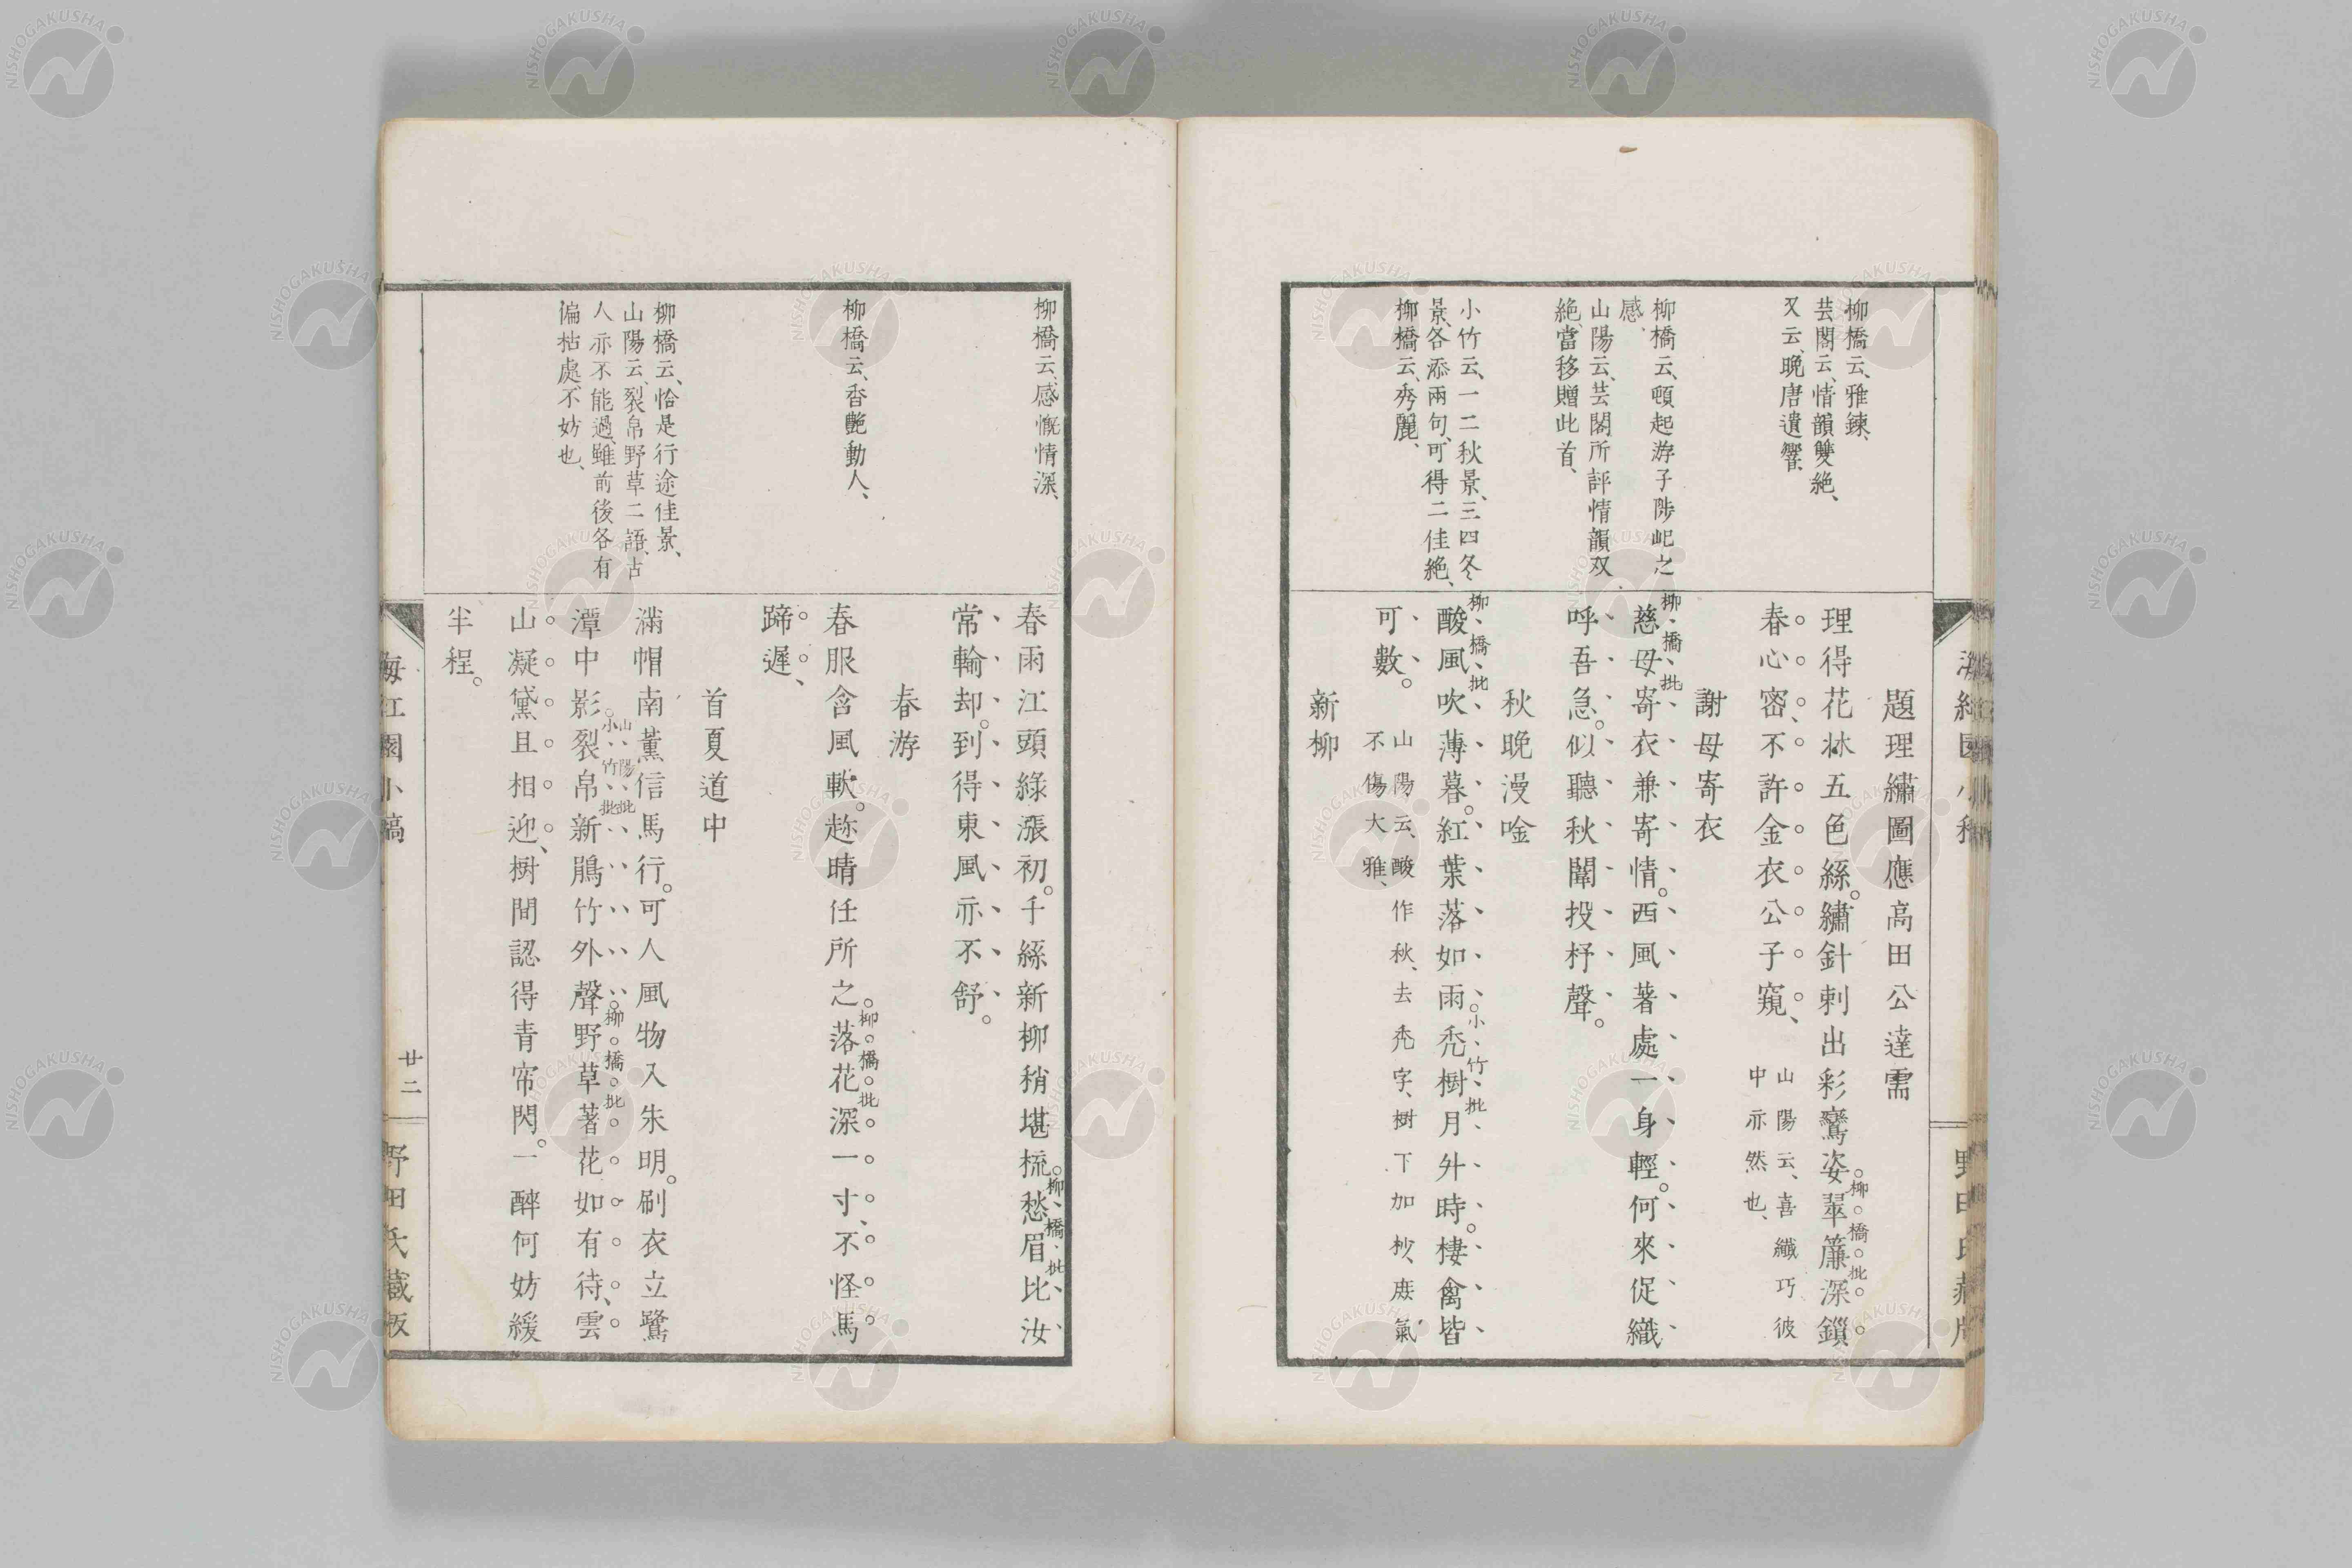 柳橋云、雅鍊、
芸閣云、情韻雙絶、
又云、晩唐遺響、
柳橋云、頓起游子陟屺之
感、
山陽云、芸閣所評情韻双
絶、當移贈此首、
小竹云、一二秋景、三四冬
景、各添兩句、可得二佳絶、
柳橋云、秀麗、
題理繡圖應高田公達需
理得花牀五色絲。繡針刺出彩鸞姿翠簾深鎖
柳橋批
春心密、不許金衣公子窺、
山陽云、喜纖巧彼
中亦然也、
謝母寄衣
慈母寄衣兼寄情。西風著處一身輕。何來促織
柳橋批
呼吾急。似聽秋閨投杼聲。
秋晩漫唫
酸風吹薄暮。紅葉落如雨禿樹月外時。棲禽皆
柳橋批
小竹批
可數。
山陽云、酸作秋、去禿字、樹下加杪、庶氣
不傷大雅、
新柳
野田氏藏版
柳橋云、感慨情深、
柳橋云、香艷動人、
柳橋云、恰是行途佳景、
山陽云、裂帛野草二語、古
人亦不能過、雖前後各有
偏枯處、不妨也、
春雨江頭綠漲初。千絲新柳稍堪梳愁眉比汝
柳橋批
常輸却。到得東風亦不舒。
春游
春服含風軟。趂晴任所之落花深一寸、不怪馬
柳橋批
蹄遲、
首夏道中
滿帽南薰信馬行。可人風物入朱明。刷衣立鷺
潭中影裂帛新鵑竹外聲野草著花如有待、雲
山陽批
小竹批
柳橋批
山凝黛且相迎、樹間認得青帘閃。一醉何妨緩
半程。
海紅園小稿
廿二
野田氏藏板
NISHOGAKUSHA